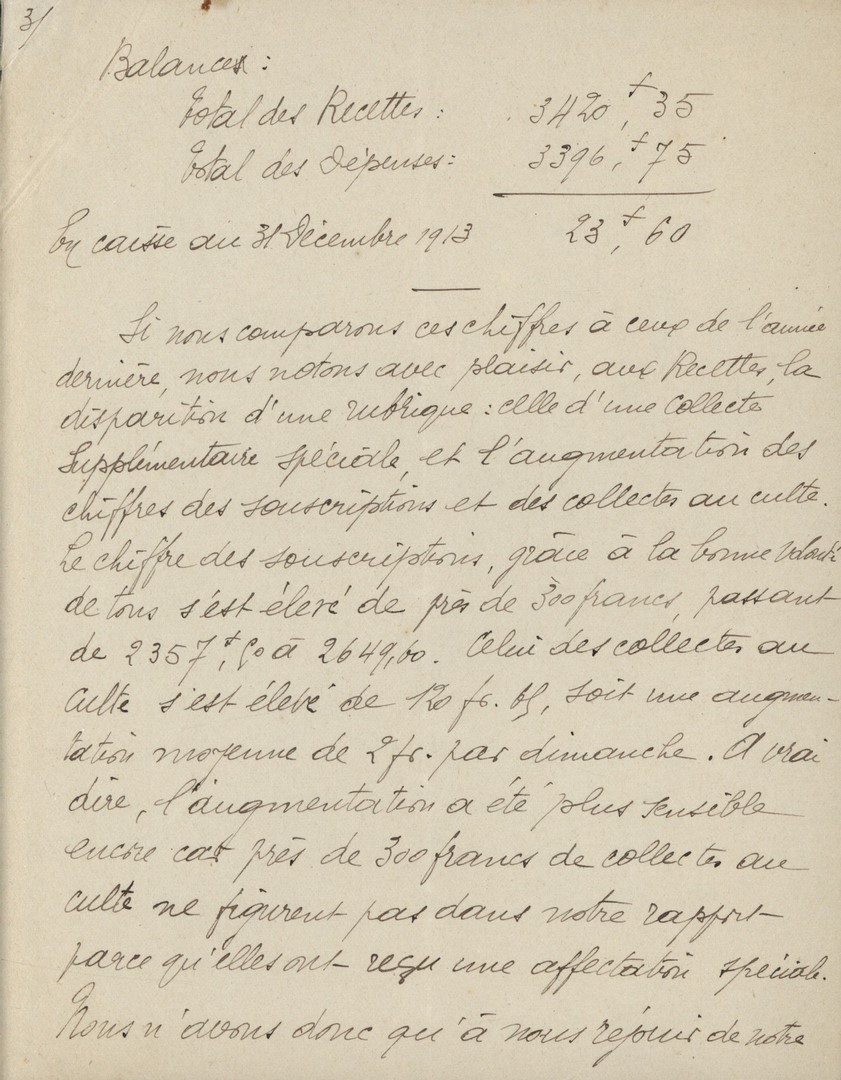 3/
Balances :
Total des Recettes : 3420,f 35
Total des Dépenses : 3396,f 75
En caisse au 31 Décembre 1913 23,f 60
Si nous comparons ces chiffres à ceux de l'année
dernière, nous notons avec plaisir, aux Recettes, la
disparition d'une rubrique : celle d'une Collecte
Supplémentaire spéciale, et l'augmentation des
chiffres des souscriptions et des collectes au culte.
Le chiffre des souscriptions, grâce à la bonne volonté
de tous s'est élevé de près de 300 francs, passant
de 2357,f à 2649,60. Celui des collectes au
culte s'est élevé de 120 fr. soit une augmen-
tation moyenne de 2 fr. par dimanche. A vrai
dire, l'augmentation a été plus sensible
encore car près de 300 francs de collectes au
culte ne figurent pas dans notre rapport
parce qu'elles ont reçu une affectation spéciale.
Nous n'avons donc qu'à nous réjouir de notre